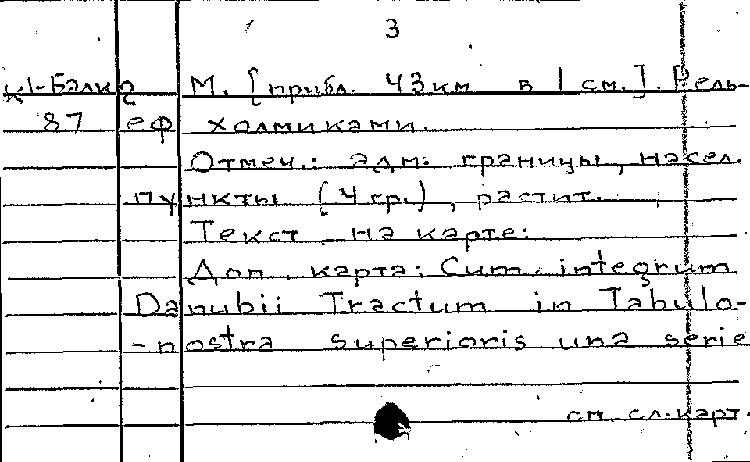 3
К1-Балка М. [прибл. 43км в 1 см.]. Рель-
87 еф холмиками.
Отмеч.: адм. границы, насел.
пункты (4 гр.), растит.
Текст на карте:
Доп. карта: Cum integrum
Danubii Tractum in Tabulo-
-nostra superioris una serie
см. сл. карт.